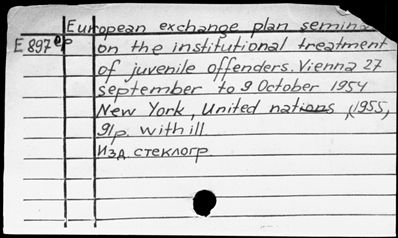 European exchange plan semin
E 897 ep on the institutional treatment
of juvenile offenders. Vienna 27
september to 9 October 1954
New York, United nations, 1955,
91p. with ill
Изд. стеклогр.